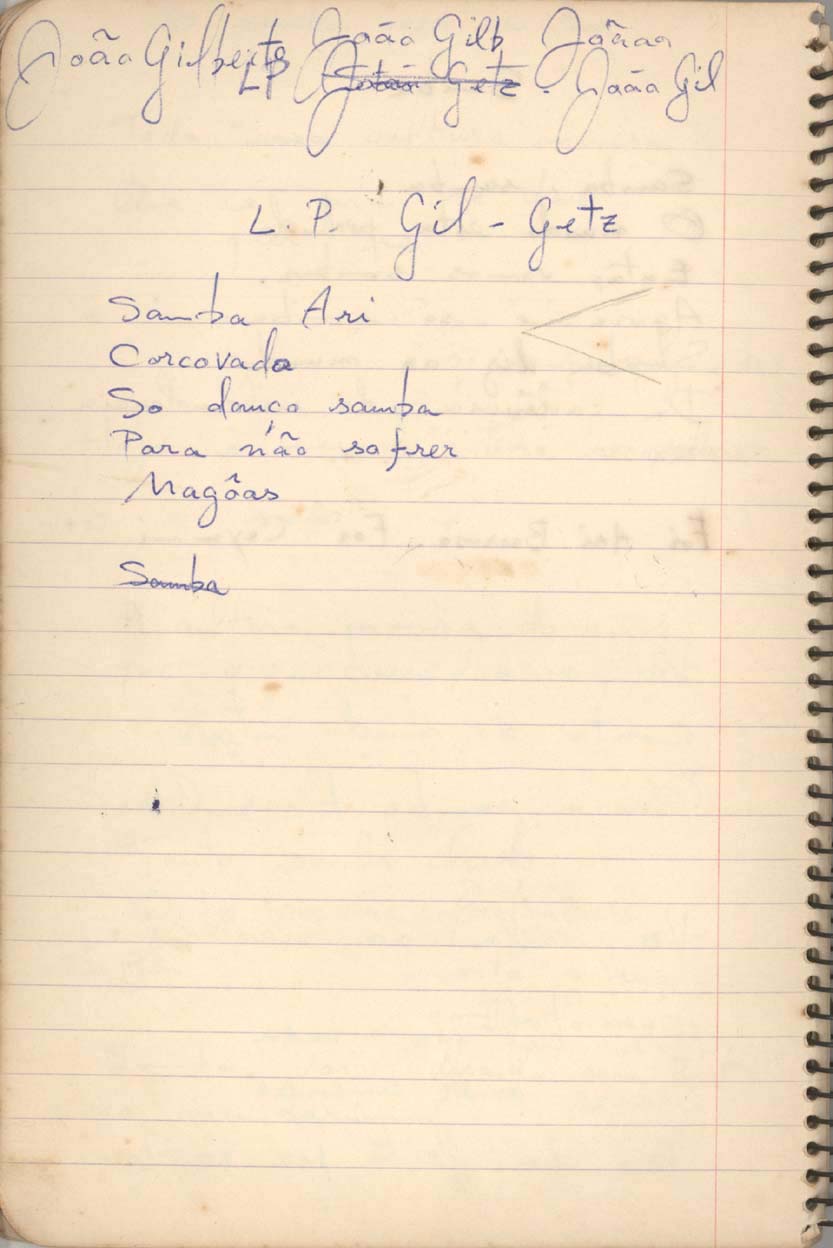 João Gilberto João Gilb Joãao
LP Getz - João Gil
L. P. Gil - Getz
Samba Ari
Corcovado
So danço samba
Para não sofrer
Magôas
Samba